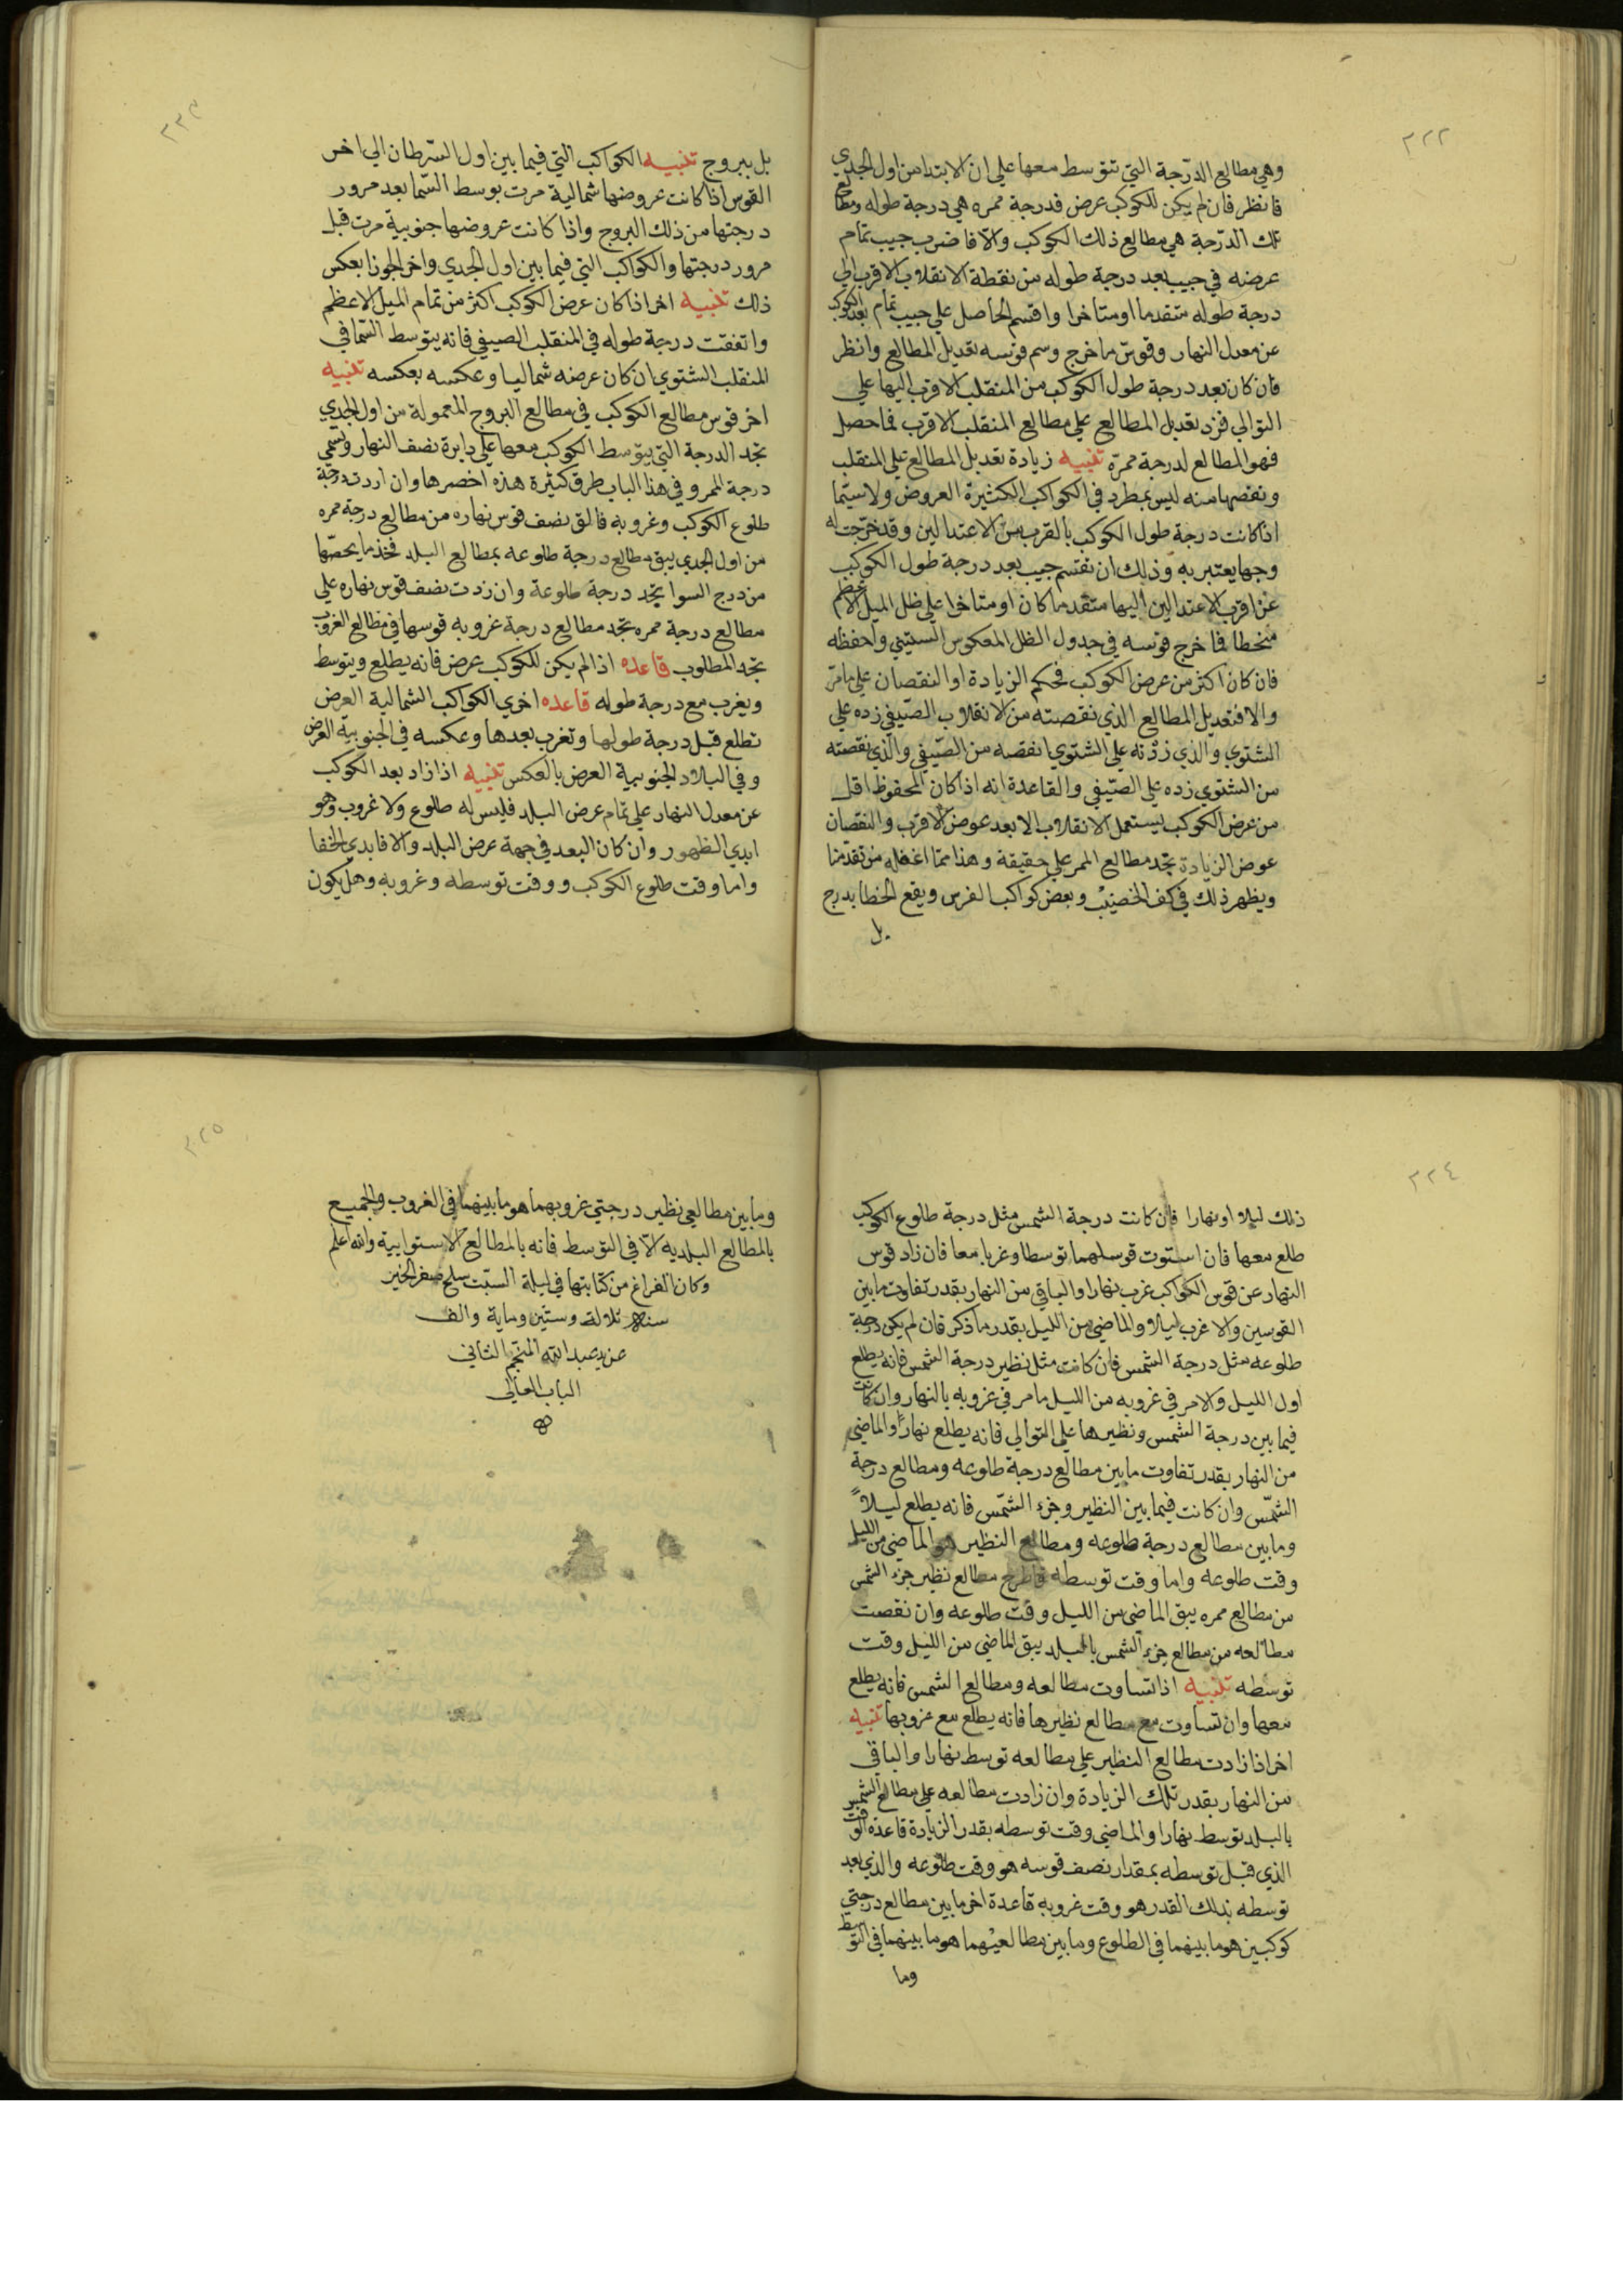 ٢٢٢
وهي مطالع الدّرجة التي تتوسط معها علي ان الابتدا من اول الجدي
فانظر فان لم يكن للكوكب عرض فدرجة ممره هي درجة طوله ومطالع
تلك الدّرجة هي مطالع ذلك الكوكب والّا فاضرب جيب تمام
عرضه في جيب بعد درجة طوله من نقطة الانقلاب الاقرب الي
درجة طوله متقدما او متاخرا واقسم الحاصل علي جيب تمام بعد الكوكب
عن معدل النهار وقوسّ ماخرج وسم قوسه تعديل المطالع وانظر
فان كان بعد درجة طول الكوكب من المنقلب الاقرب اليها علي
التوالي فزد تعديل المطالع علي مطالع المنقلب الاقرب فما حصل
فهو المطالع لدرجة ممرّه تنبيه زيادة تعديل المطالع علي المنقلب
ونقصها منه ليس بمطرد في الكواكب الكثيرة العروض ولاسيّما
اذا كانت درجة طول الكوكب بالقرب من الاعتدالين وقد خرّجت له
وجها يعتبر به وذلك ان نقسم جيب بعد درجة طول الكوكب
عن اقرب الاعتدالين اليها متقدما كان او متاخرا علي ظل الميل الاعظم
منحطا فما خرج قوسه في جدول الظل المعكوس الستيني واحفظه
فان كان اكثر من عرض الكوكب فحكم الزيادة او النقصان علي مامرّ
والا فتعديل المطالع الذي نقصته من الانقلاب الصّيفي زده علي
الشتوي والذي زدته علي الشتوي انقصه من الصّيفي والذي نقصته
من الشتوي زده علي الصّيفي والقاعدة انه اذا كان المحفوظ اقل
من عرض الكوكب يستعمل الانقلاب الابعد عوض الاقرب والنقصان
عوض الزيادة تجد مطالع الممر علي حقيقة وهذا ممّا اغفله من تقدّمنا
ويظهر ذلك في كف الخضيب وبعض كواكب الفرس ويقع الخطا بدرج
بل
٢٢٣
بل ببروج تنبيه الكواكب التي فيما بين اول السّرطان الي اخر
القوس اذا كانت عروضها شمالية مرت بوسط السّما بعد مرور
درجتها من ذلك البروج واذا كانت عروضها جنوبية مرت قبل
مرور درجتها والكواكب التي فيما بين اول الجدي واخر الجوزا بعكس
ذلك تنبيه اخر اذا كان عرض الكوكب اكثر من تمام الميل الاعظم
واتفقت درجة طوله في المنقلب الصيفي فانه يتوسط السّما في
المنقلب الشتوي ان كان عرضه شماليا وعكسه بعكسه تنبيه
اخر قوس مطالع الكوكب في مطالع البروج المعمولة من اول الجدي
تجد الدرجة التي يتوسط الكوكب معها علي دايرة نصف النهار وتسمّي
درجة الممر وفي هذا الباب طرق كثيرة هذه اخصرها وان اردت درجة
طلوع الكوكب وغروبه فالق نصف قوس نهاره من مطالع درجة ممره
من اول الجدي يبق مطالع درجة طلوعه بمطالع البلد فخذ ما يحصّها
من درج السوا تجد درجة طلوعة وان زدت نصف قوس نهاره علي
مطالع درجة ممره تجد مطالع درجة غروبه قوسها في مطالع الغروب
تجد المطلوب قاعده اذا لم يكن للكوكب عرض فانه يطلع ويتوسط
ويغرب مع درجة طوله قاعده اخري الكواكب الشمالية العرض
تطلع قبل درجة طولها وتغرب بعدها وعكسه في الجنوبية العرض
وفي البلاد الجنوبية العرض بالعكس تنبيه اذا زاد بعد الكوكب
عن معدل النهار علي تمام عرض البلد فليس له طلوع ولا غروب وهو
ابدي الظهور وان كان البعد في جهة عرض البلد والا فابدي الخفا
وامّا وقت طلوع الكوكب ووقت توسطه وغروبه وهل يكون
٢٢٤
ذلك ليلا او نهارا فان كانت درجة الشمس مثل درجة طلوع الكوكب
طلع معها فان استوت قوساهما توسطا وغربا معا فان زاد قوس
النهار عن قوس الكواكب غرب نهارا والباقي من النهار بقدر تفاوت مابين
القوسين والا غرب ليلا والماضي من الليل بقدر ما ذكر فان لم يكن درجة
طلوعه مثل درجة الشمس فان كانت مثل نظير درجة الشمس فانه يطلع
اول الليل والامر في غروبه من الليل مامر في غروبه بالنهار وان كانت
فيما بين درجة الشمس ونظيرها علي التوالي فانه يطلع نهاراً والماضي
من النهار بقدر تفاوت مابين مطالع درجة طلوعه ومطالع درجة
الشّمس وان كانت فيما بين النظير وجزء الشّمس فانه يطلع ليلاً
ومابين مطالع درجة طلوعه ومطالع النظير هو الماضي من الليل
وقت طلوعه واما وقت توسطه فاطرح مطالع نظير جزء الشمس
من مطالع ممره يبق الماضي من الليل وقت طلوعه وان نقصت
مطالعه من مطالع جزء الشمس بالبلد يبق الماضي من الليل وقت
توسطه تنبيه اذا تساوت مطالعه ومطالع الشمس فانه يطلع
معها وان تساوت مع مطالع نظيرها فانه يطلع مع غروبها تنبيه
اخر اذا زادت مطالع النظير علي مطالعه توسط نهارا والباقي
من النهار بقدر تلك الزيادة وان زادت مطالعه علي مطالع الشمس
بالبلد توسط نهارا والماضي وقت توسطه بقدر الزيادة قاعدة الوقت
الذي قبل توسطه بمقدار نصف قوسه هو وقت طلوعه والذي بعد
توسطه بذلك القدر هو وقت غروبه قاعدة اخر مابين مطالع درجتي
كوكبين هو ما بينهما في الطلوع وما بين مطالعيهما هو ما بينهما في التوسط
وما
٢٢٥
وما بين مطالعي نظير درجتي غروبهما هو ما بينهما في الغروب والجميع
بالمطالع البلديه الّا في التوسط فانه بالمطالع الاستوايية والله اعلم
وكان الفراغ من كتابتها في ليلة السبت سلخ صفر الخير
سنة ثلاثة وستين وماية والف
عن يد عبد الله المنجم الثاني
الباب العالي